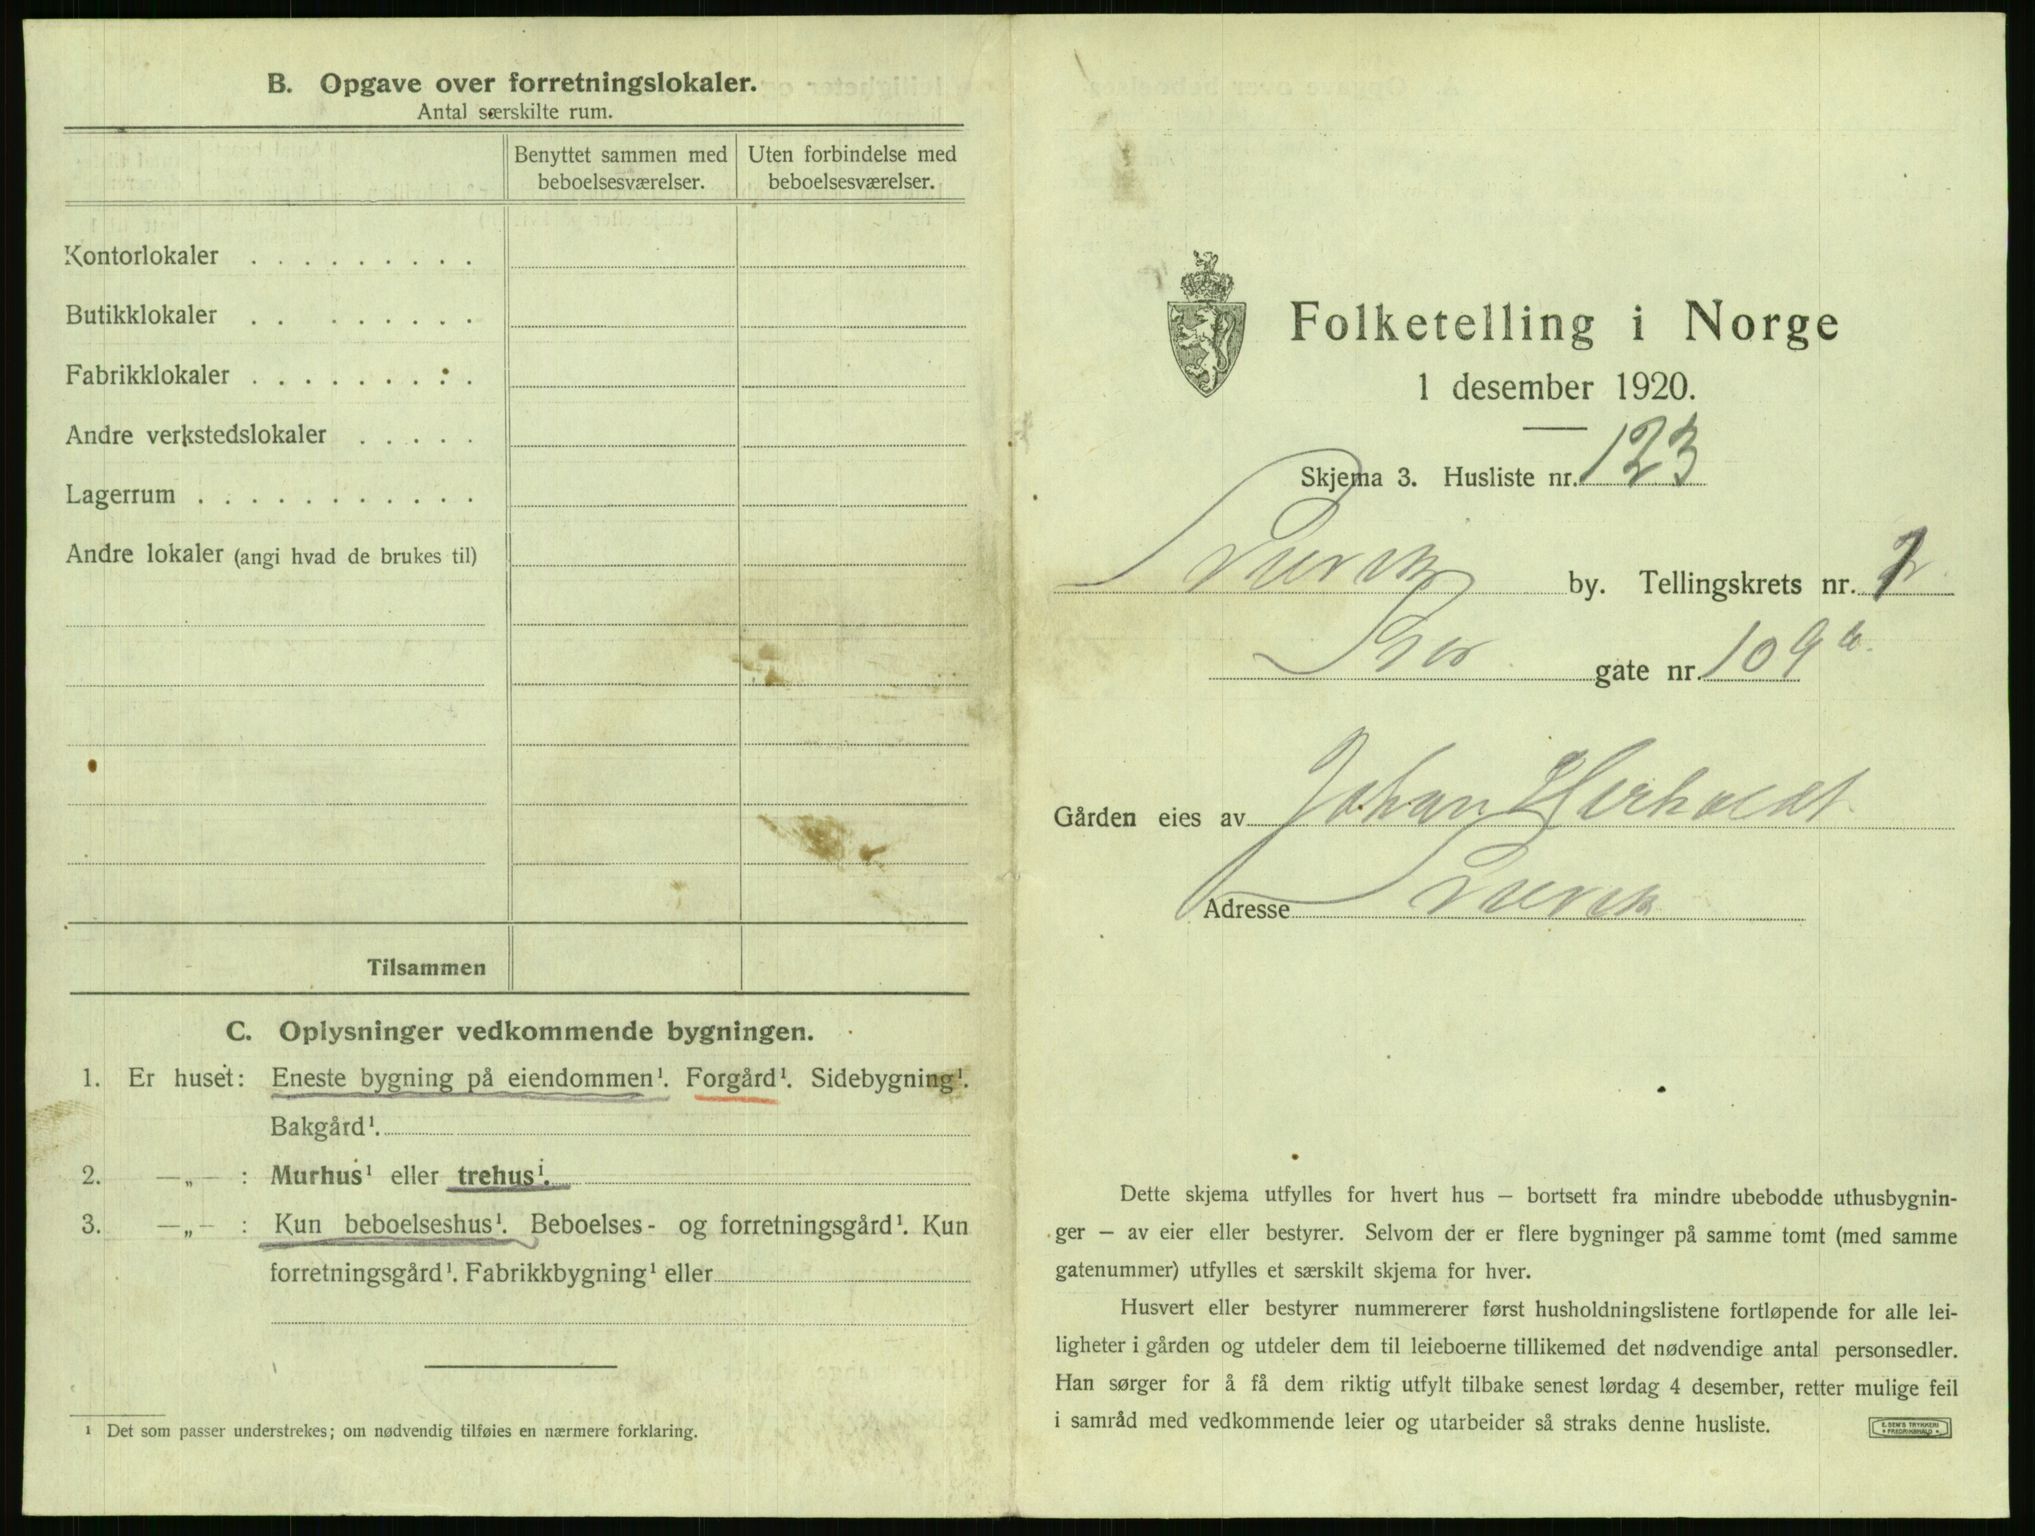 B. Opgave over forretningslokaler.
Antal særskilte rum.
Benyttet sammen med beboelsesværelser.
Uten forbindelse med beboelsesværelser.
Kontorlokaler . . . . . . . . .
Butikklokaler . . . . . . . .
Fabrikklokaler . . . . . . . . .
Andre verkstedslokaler . . . . .
Lagerrum . . . . . . . . . . .
Andre lokaler (angi hvad de brukes til)
Tilsammen
C. Oplysninger vedkommende bygningen.
1. Er huset: Eneste bygning på eiendommen¹. Forgård¹. Sidebygning¹.
Bakgård¹.
2. —„— : Murhus¹ eller trehus¹.
3. —„— : Kun beboelseshus¹. Beboelses- og forretningsgård¹. Kun
forretningsgård¹. Fabrikkbygning¹ eller
¹ Det som passer understrekes; om nødvendig tilføies en nærmere forklaring.
Folketelling i Norge
1 desember 1920.
Skjema 3. Husliste nr. 123
by. Tellingskrets nr. 2
gate nr. 109
Gården eies av Johan Herholdt
Adresse
Dette skjema utfylles for hvert hus — bortsett fra mindre ubebodde uthusbygnin-
ger — av eier eller bestyrer. Selvom der er flere bygninger på samme tomt (med samme
gatenummer) utfylles et særskilt skjema for hver.
Husvert eller bestyrer nummererer først husholdningslistene fortløpende for alle lei-
ligheter i gården og utdeler dem til leieboerne tillikemed det nødvendige antal personsedler.
Han sørger for å få dem riktig utfylt tilbake senest lørdag 4 desember, retter mulige feil
i samråd med vedkommende leier og utarbeider så straks denne husliste.
E. SEM'S TRYKKERI
FREDRIKSHALD